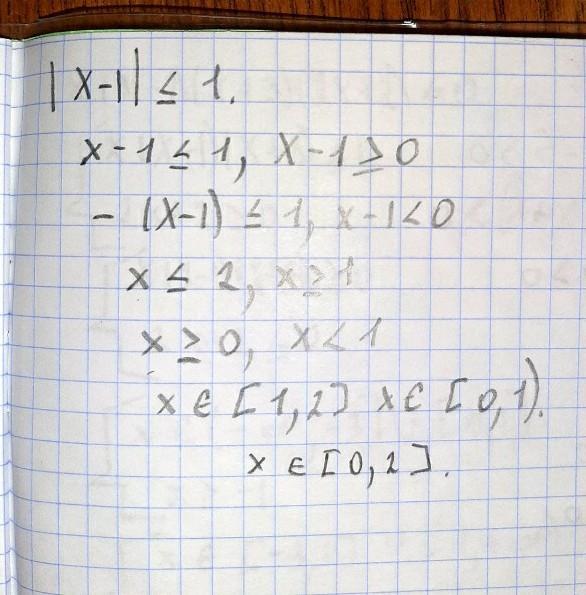 |x-1| ≤ 1.
x-1 ≤ 1, x-1 ≥ 0
- (x-1) ≤ 1, x-1 < 0
x ≤ 2, x ≥ 1
x ≥ 0, x < 1
x ∈ [1,2] x ∈ [0,1).
x ∈ [0,2].